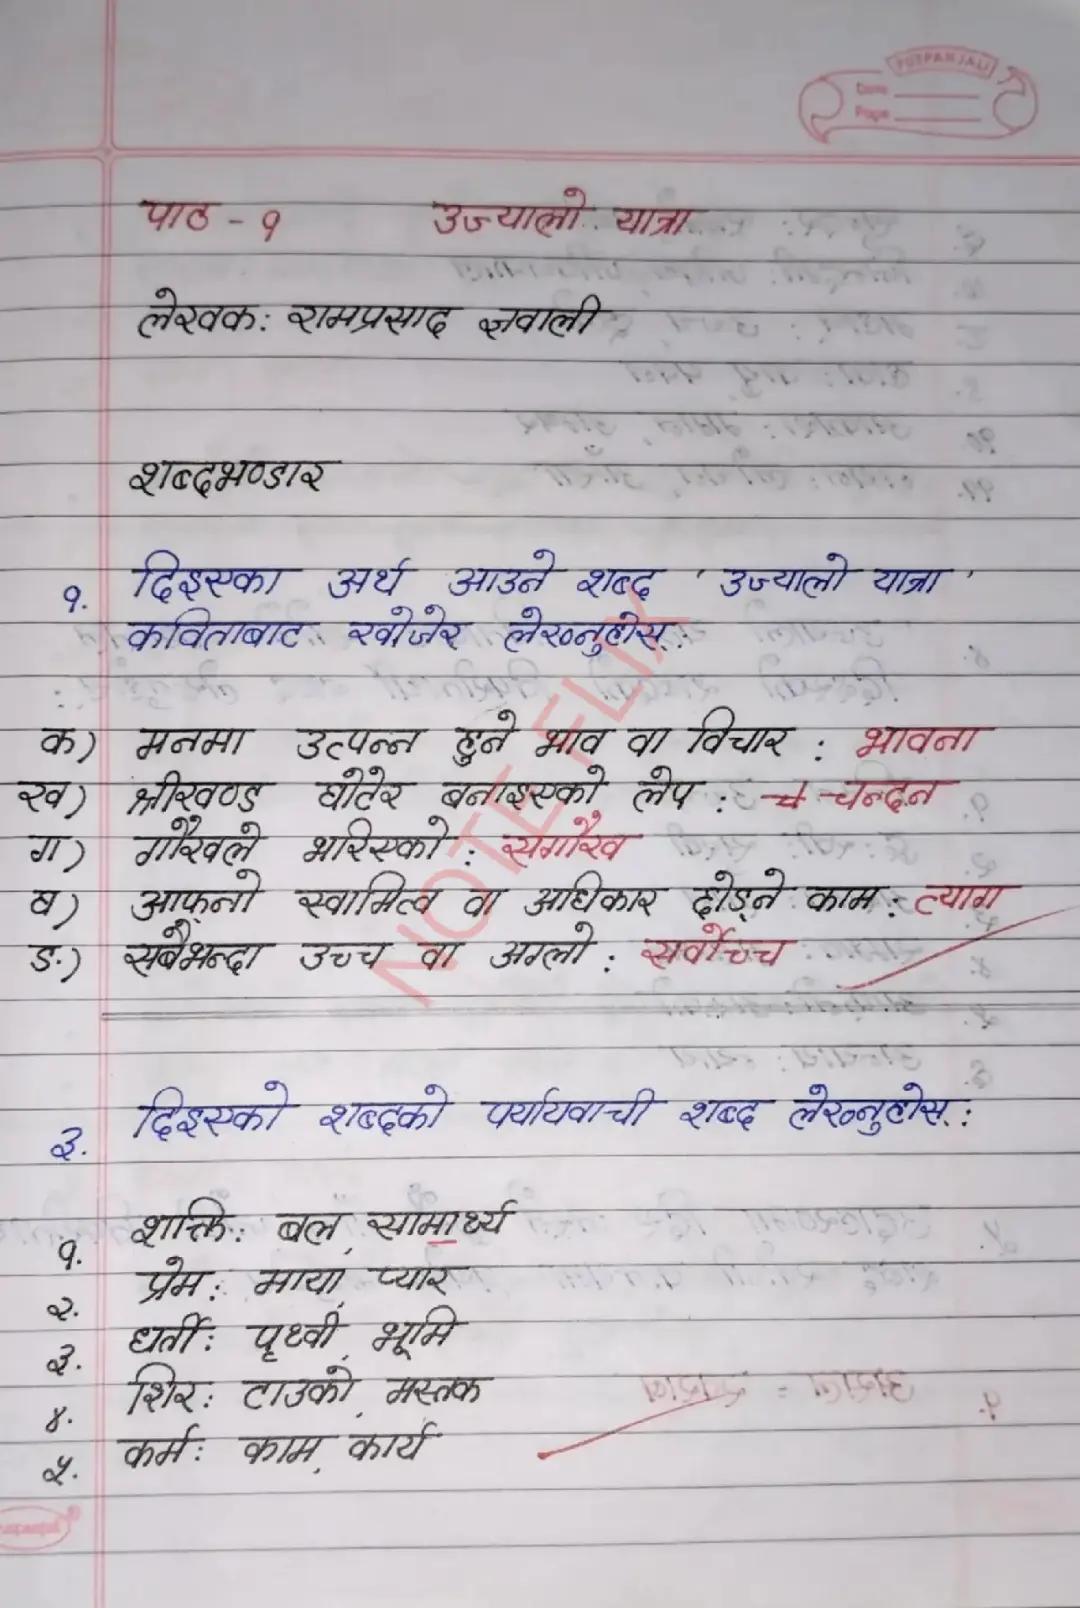 PUSPANJALI
Date
Page
पाठ - १ उज्यालो यात्रा
लेखक: रामप्रसाद ज्ञवाली
शब्दभण्डार
१. दिइएका अर्थ आउने शब्द 'उज्यालो यात्रा'
कविताबाट खोजेर लेख्नुहोस्:
क) मनमा उत्पन्न हुने भाव वा विचार : भावना
ख) श्रीखण्ड घोटेर बनाइएको लेप : चन्दन
ग) गौरवले भरिएको : सगौरव
घ) आफ्नो स्वामित्व वा अधिकार छोड्ने काम: त्याग
ङ) सबैभन्दा उच्च वा अग्लो : सर्वोच्च
NOTE FLIX
३. दिइएको शब्दको पर्यायवाची शब्द लेख्नुहोस्:
१. शक्ति: बल, सामार्थ्य
२. प्रेम: माया, प्यार
३. धर्ती: पृथ्वी, भूमि
४. शिर: टाउको, मस्तक
५. कर्म: काम, कार्य